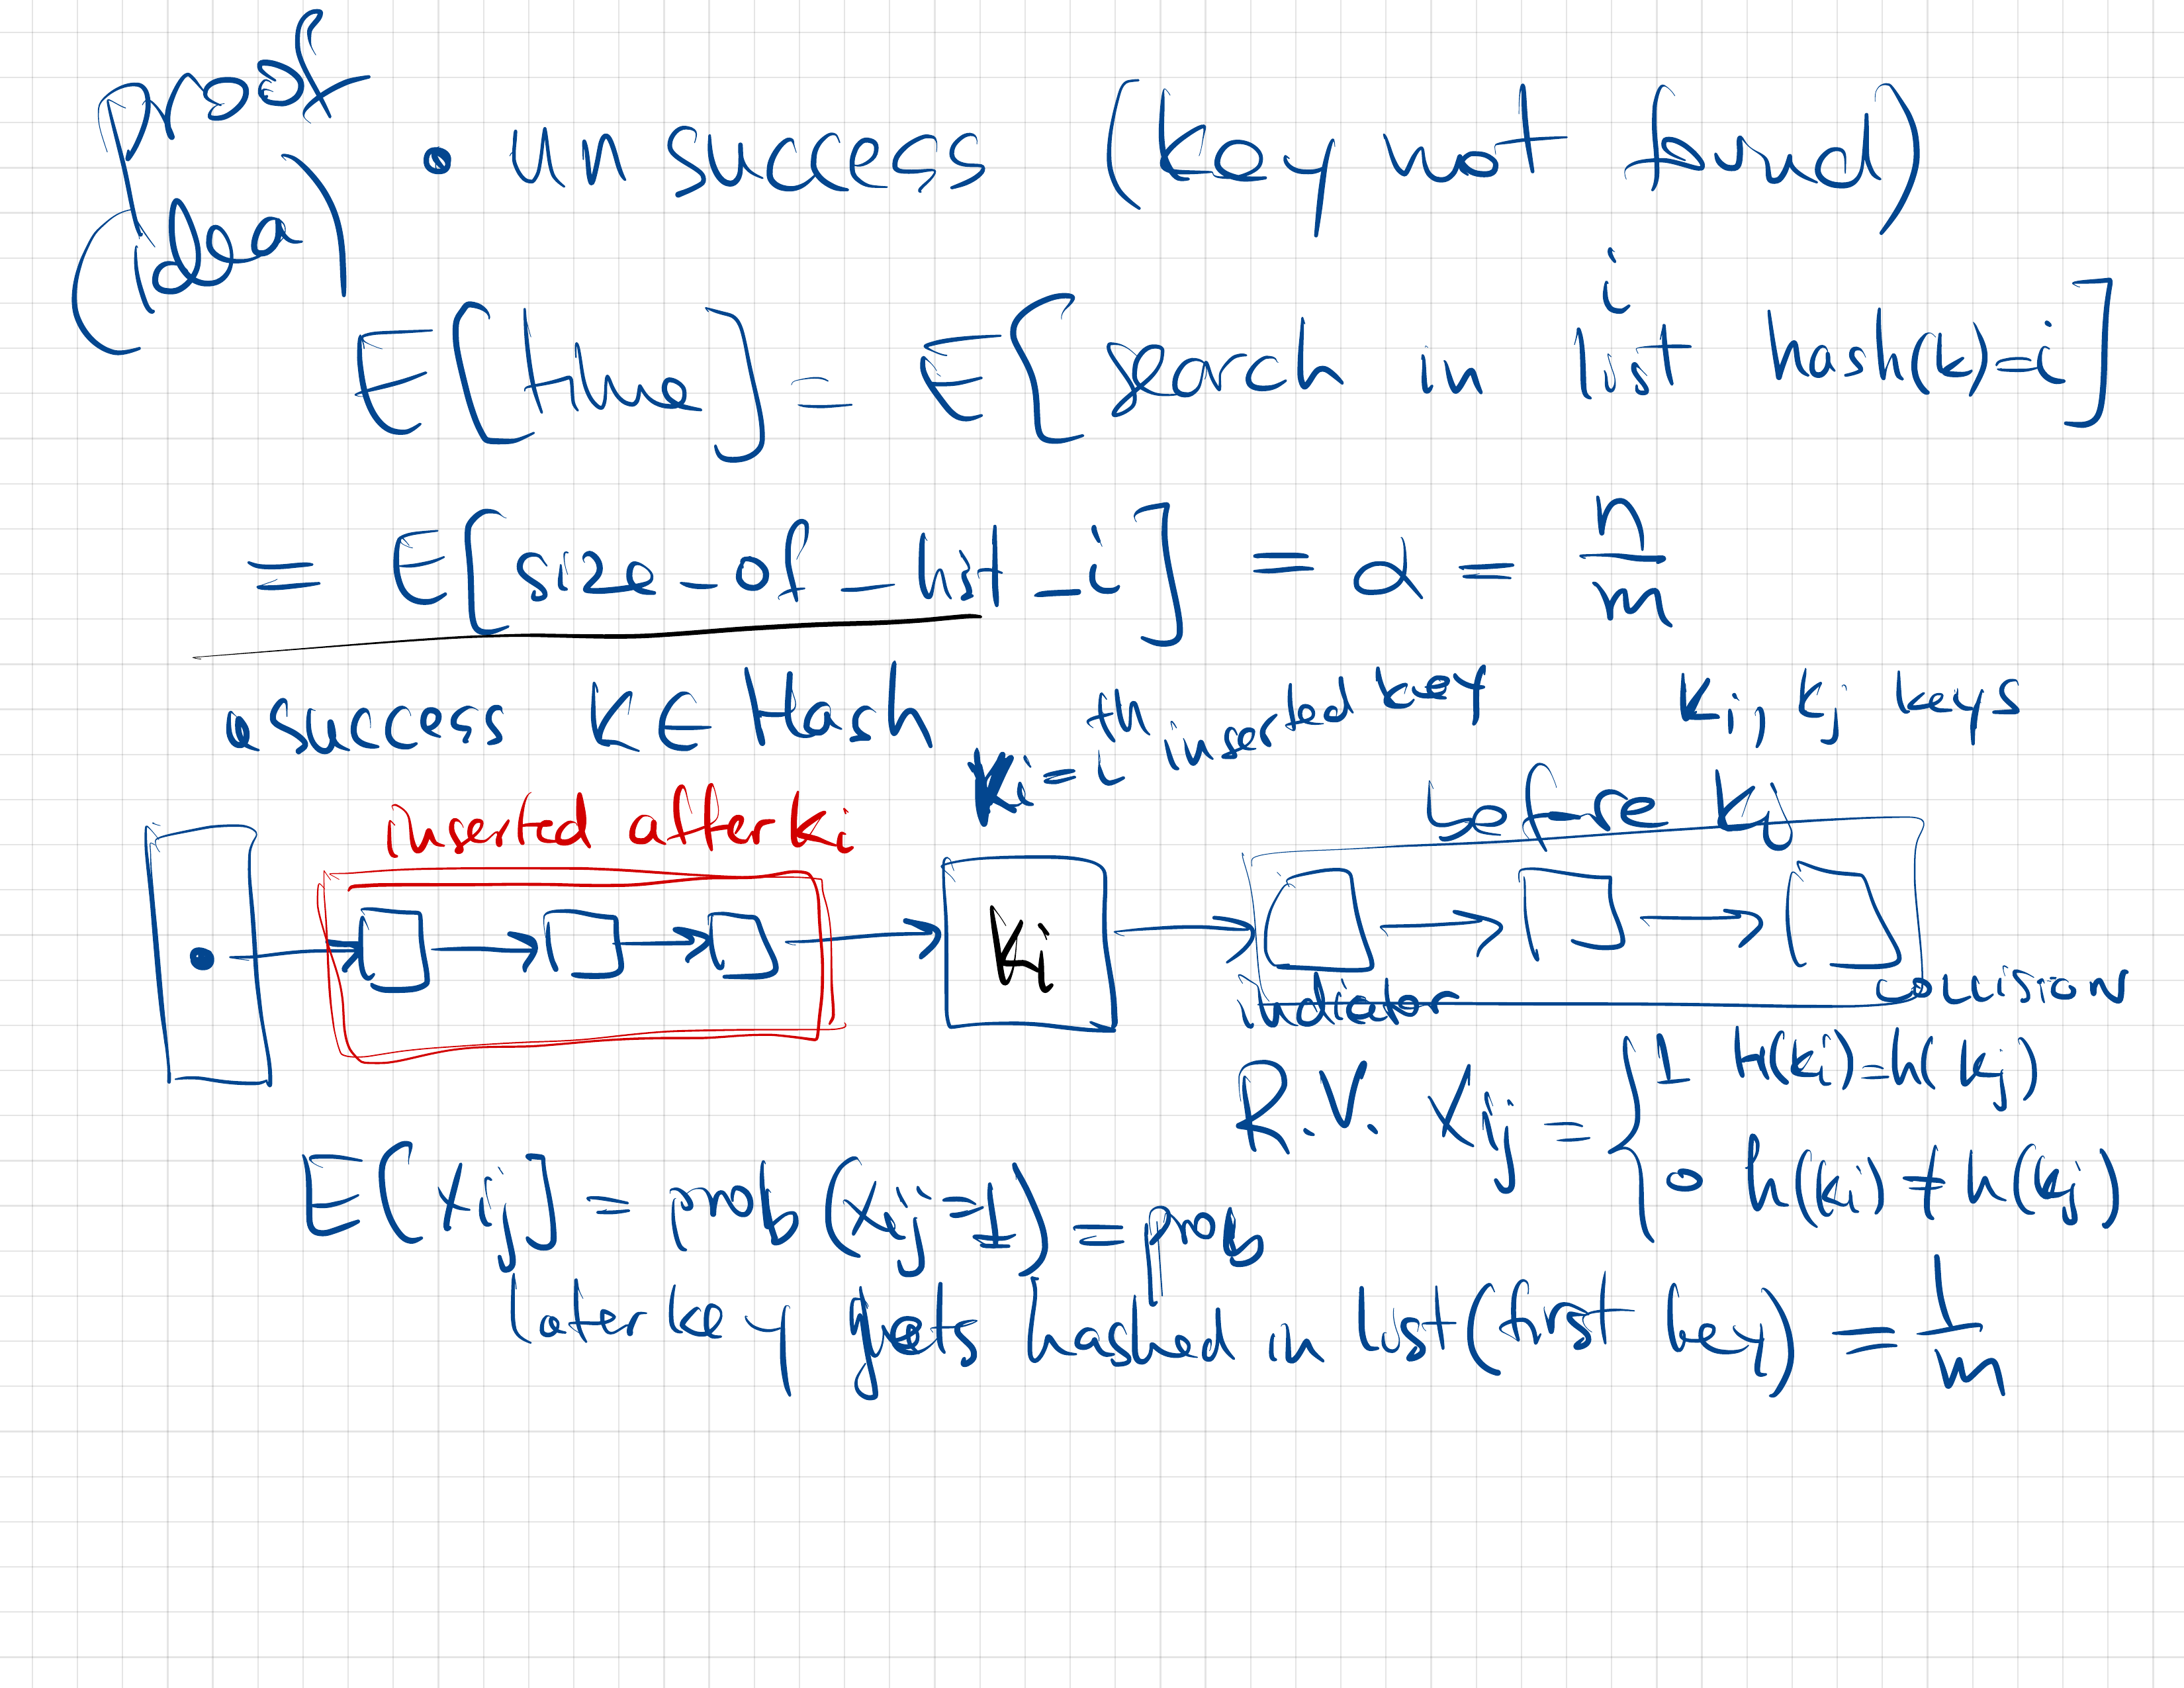 proof
(idea)
• unsuccess (key not found)
E[time] = E[search in list i hash(k)=i]
= E[size_of_list_i] = α = n/m
• success K ∈ Hash
Ki = i th inserted key
Ki, kj keys
inserted after ki
before Ki
Ki
indicator
collision
R.V. Xij = { 1 h(ki)=h(kj)
0 h(ki)≠h(kj)
E[Xij] = prob(Xij=1) = prob
later key gets hashed in list(first key) = 1/m